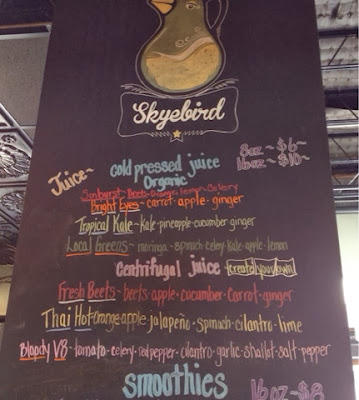 Skyebird
Juice~ cold pressed juice 8oz ~ $6~
Organic 16oz ~ $10~
Sunburst - Beets - orange - lemon - celery
Bright Eyes - carrot · apple · ginger
Tropical Kale - kale · pineapple · cucumber · ginger
Local Greens - moringa - spinach · celery · kale · apple · lemon
Centrifugal juice create your own
Fresh Beets - beets · apple · cucumber · carrot · ginger
Thai Hot - orange · apple · jalapeño - spinach - cilantro - lime
Bloody V8 - tomato · celery · red pepper · cilantro · garlic · shallot · salt · pepper
smoothies 16oz - $8